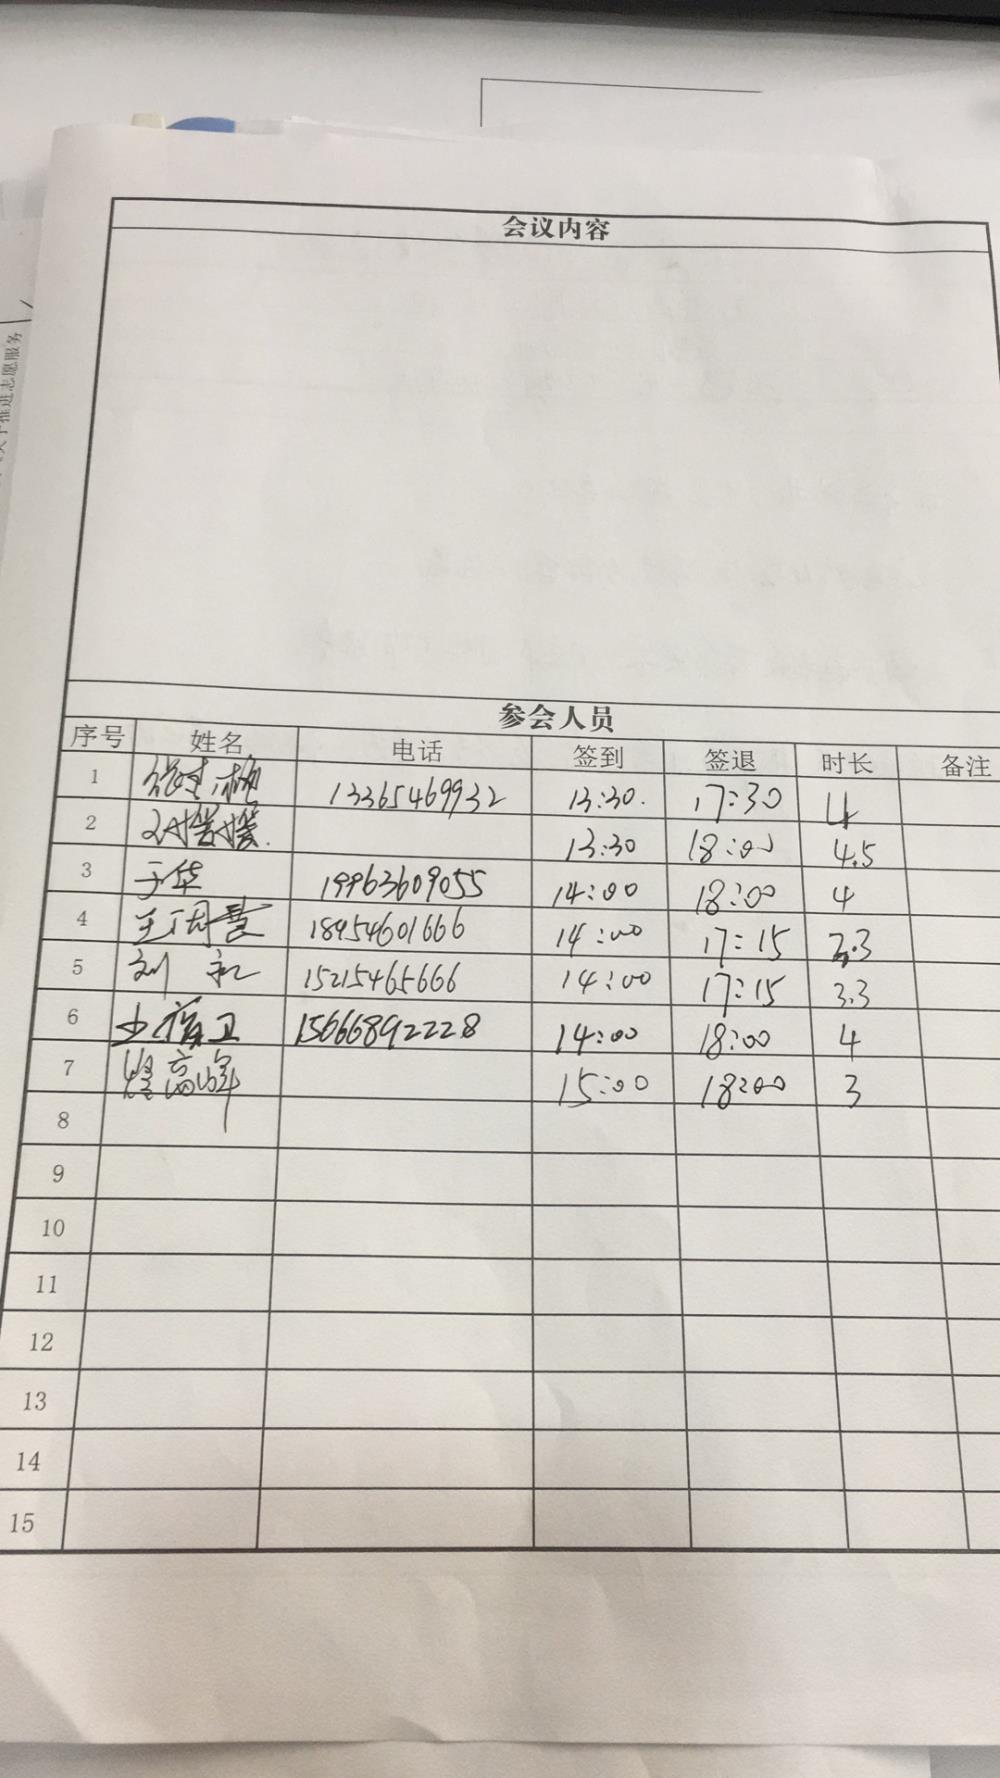 会议内容
参会人员
序号 姓名 电话 签到 签退 时长 备注
1 13365469932 13:30. 17:30 4
2 13:30 18:00 4.5
3 于华 19963609055 14:00 18:00 4
4 18954601666 14:00 17:15 3.3
5 刘 15215465666 14:00 17:15 3.3
6 15666892228 14:00 18:00 4
7 15:00 18:00 3
8
9
10
11
12
13
14
15
推进志愿服务